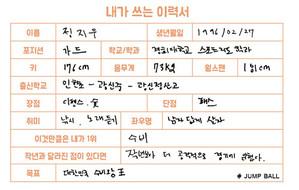 내가 쓰는 이력서
이름 정지우 생년월일 1996/02/27
포지션 가드 학교/학과 경희대학교 스포츠지도학과
키 176cm 몸무게 73kg 윙스팬 181cm
출신학교 광신중 - 광신정산고
장점 디펜스, 슛 단점 패스
취미 낚시, 노래듣기 좌우명 남자답게 살자
이것만큼은 내가 1위 수비
작년과 달라진 점이 있다면 작년보다 더 공격적으로 경기에 임한다.
목표 대한민국 수비왕
# JUMP BALL